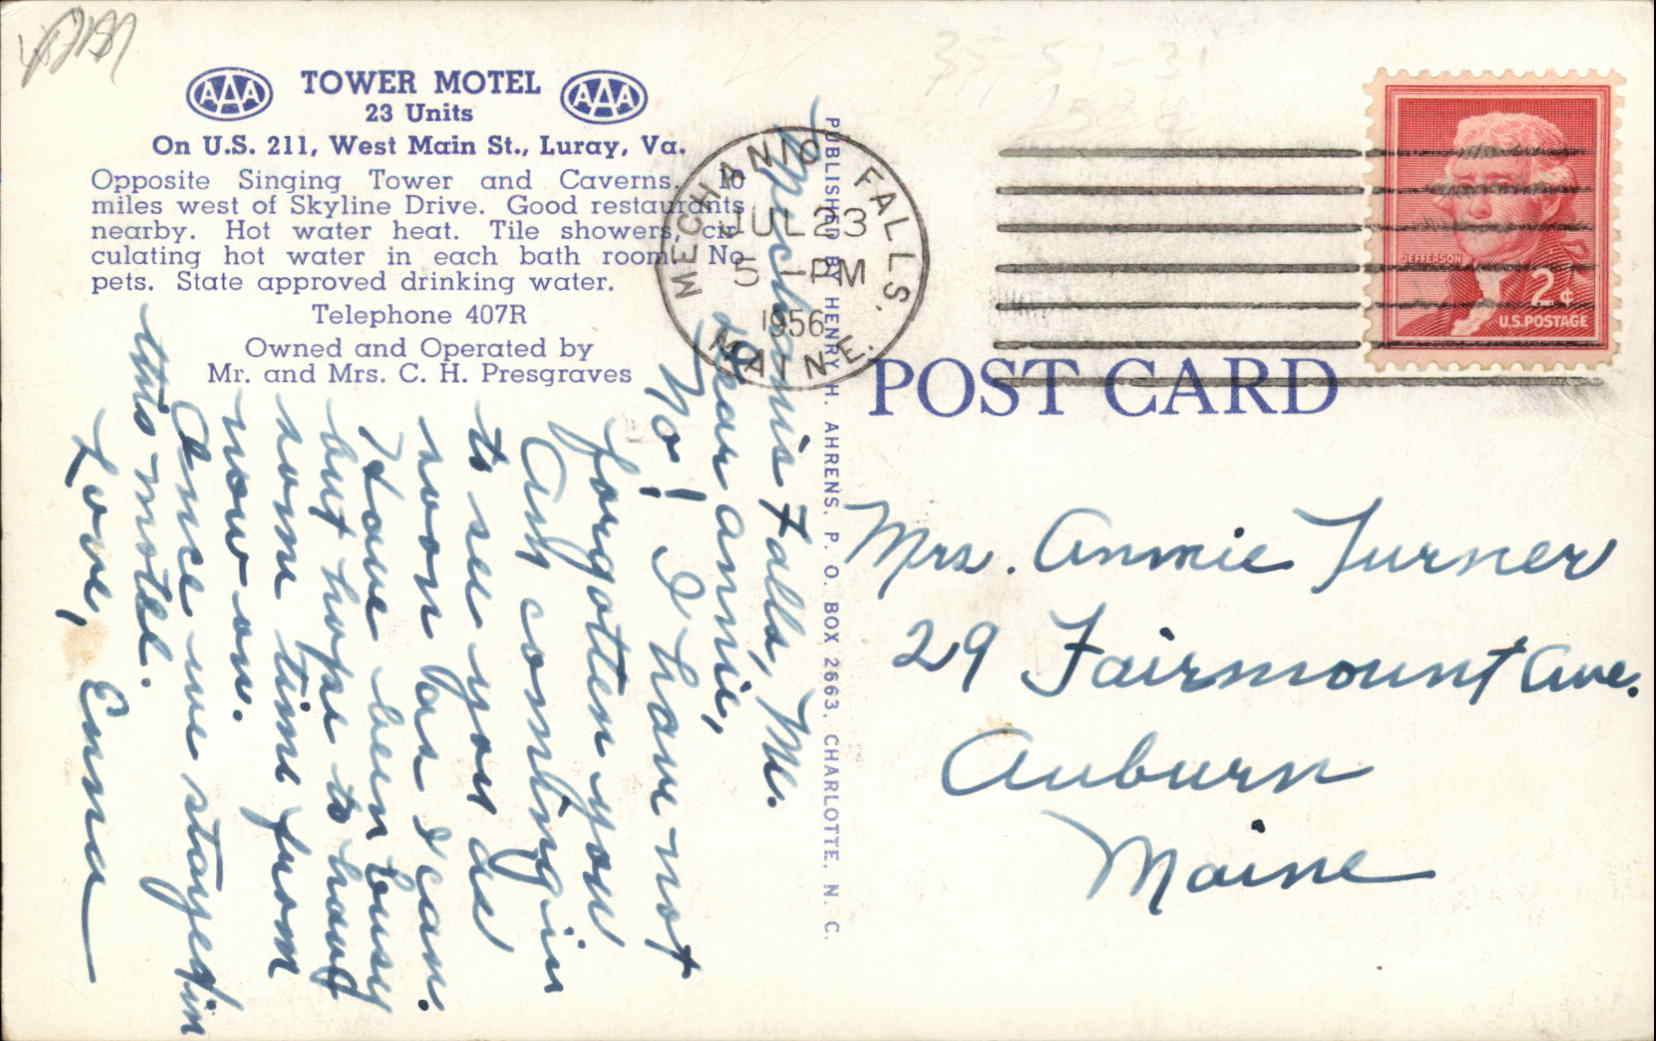 AAA TOWER MOTEL AAA
23 Units
On U.S. 211, West Main St., Luray, Va.
Opposite Singing Tower and Caverns. 10
miles west of Skyline Drive. Good restaurants
nearby. Hot water heat. Tile showers, cir-
culating hot water in each bath room. No
pets. State approved drinking water.
Telephone 407R
Owned and Operated by
Mr. and Mrs. C. H. Presgraves
Mechanis Falls, Me.
Dear Annie,
No! I have not
forgotten you
Am coming in
to see you as
soon as I can.
Have been busy
but hope to have
some time from
now on.
Once we stayed in
this motel.
Love, Emma
PUBLISHED BY HENRY H. AHRENS, P. O. BOX 2663, CHARLOTTE, N. C.
MECHANIC FALLS, MAINE.
JUL 23
5 - PM
1956
JEFFERSON
2¢
U.S. POSTAGE
POST CARD
Mrs. Annie Turner
29 Fairmount Ave.
Auburn
Maine